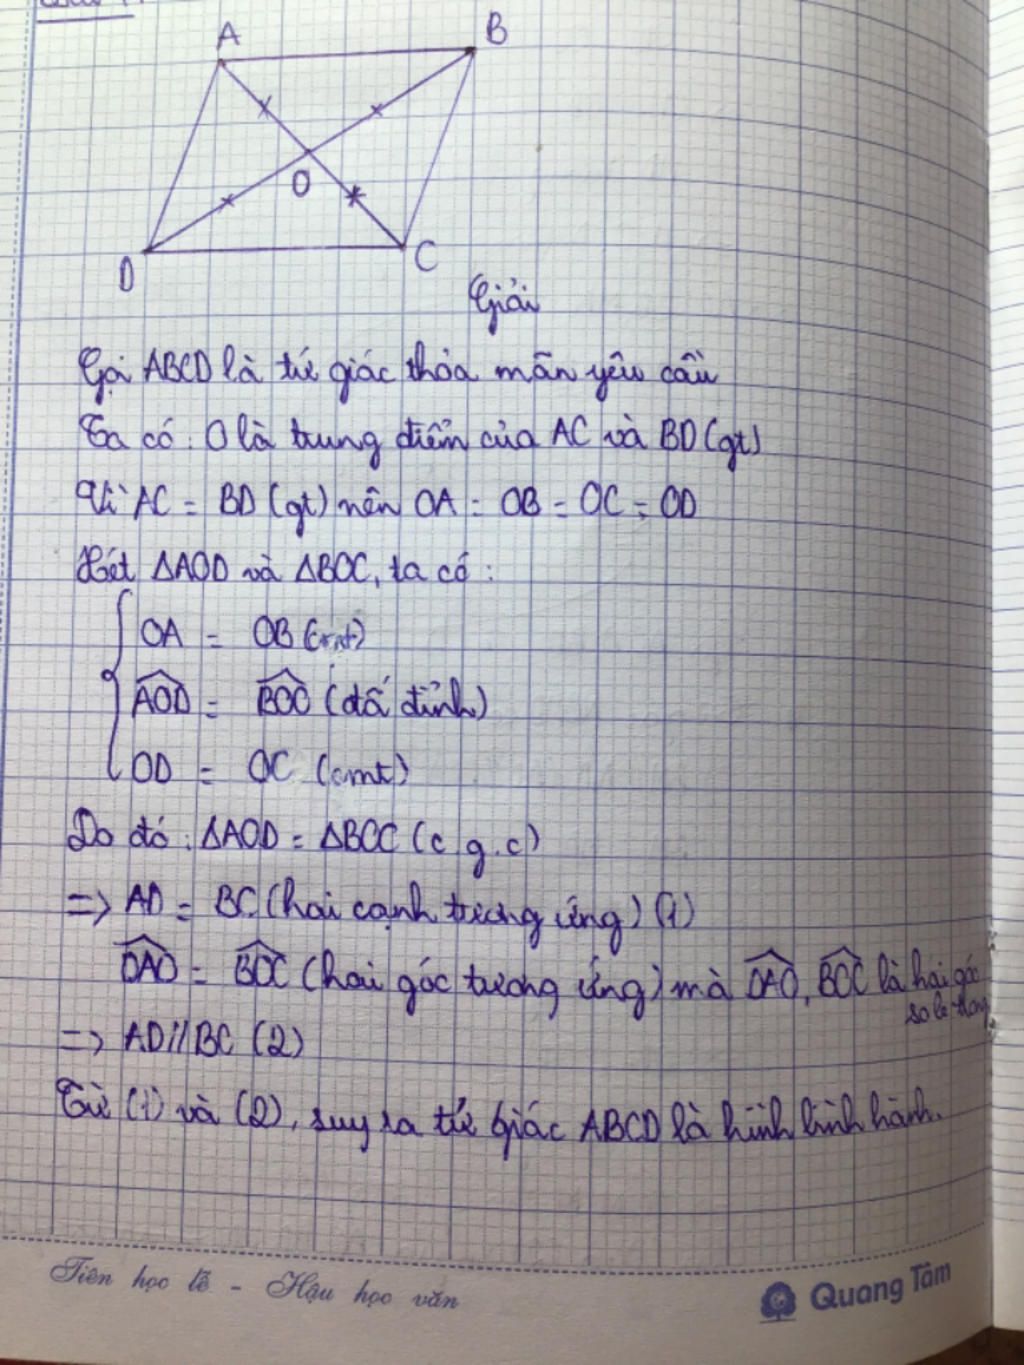 A
B
O
D
C
Giải
Gọi ABCD là tứ giác thỏa mãn yêu cầu
Ta có: O là trung điểm của AC và BD (gt)
Vì AC = BD (gt) nên OA = OB = OC = OD
Xét ΔAOD và ΔBOC, ta có:
OA = OB (cmt)
AOD = BOC (đối đỉnh)
OD = OC (cmt)
Do đó: ΔAOD = ΔBOC (c.g.c)
=> AD = BC (hai cạnh tương ứng) (1)
DAO = BOC (hai góc tương ứng) mà DAO, BOC là hai góc
so le trong
=> AD//BC (2)
Từ (1) và (2), suy ra tứ giác ABCD là hình bình hành.
Tiên học lễ - Hậu học văn
Quang Tâm